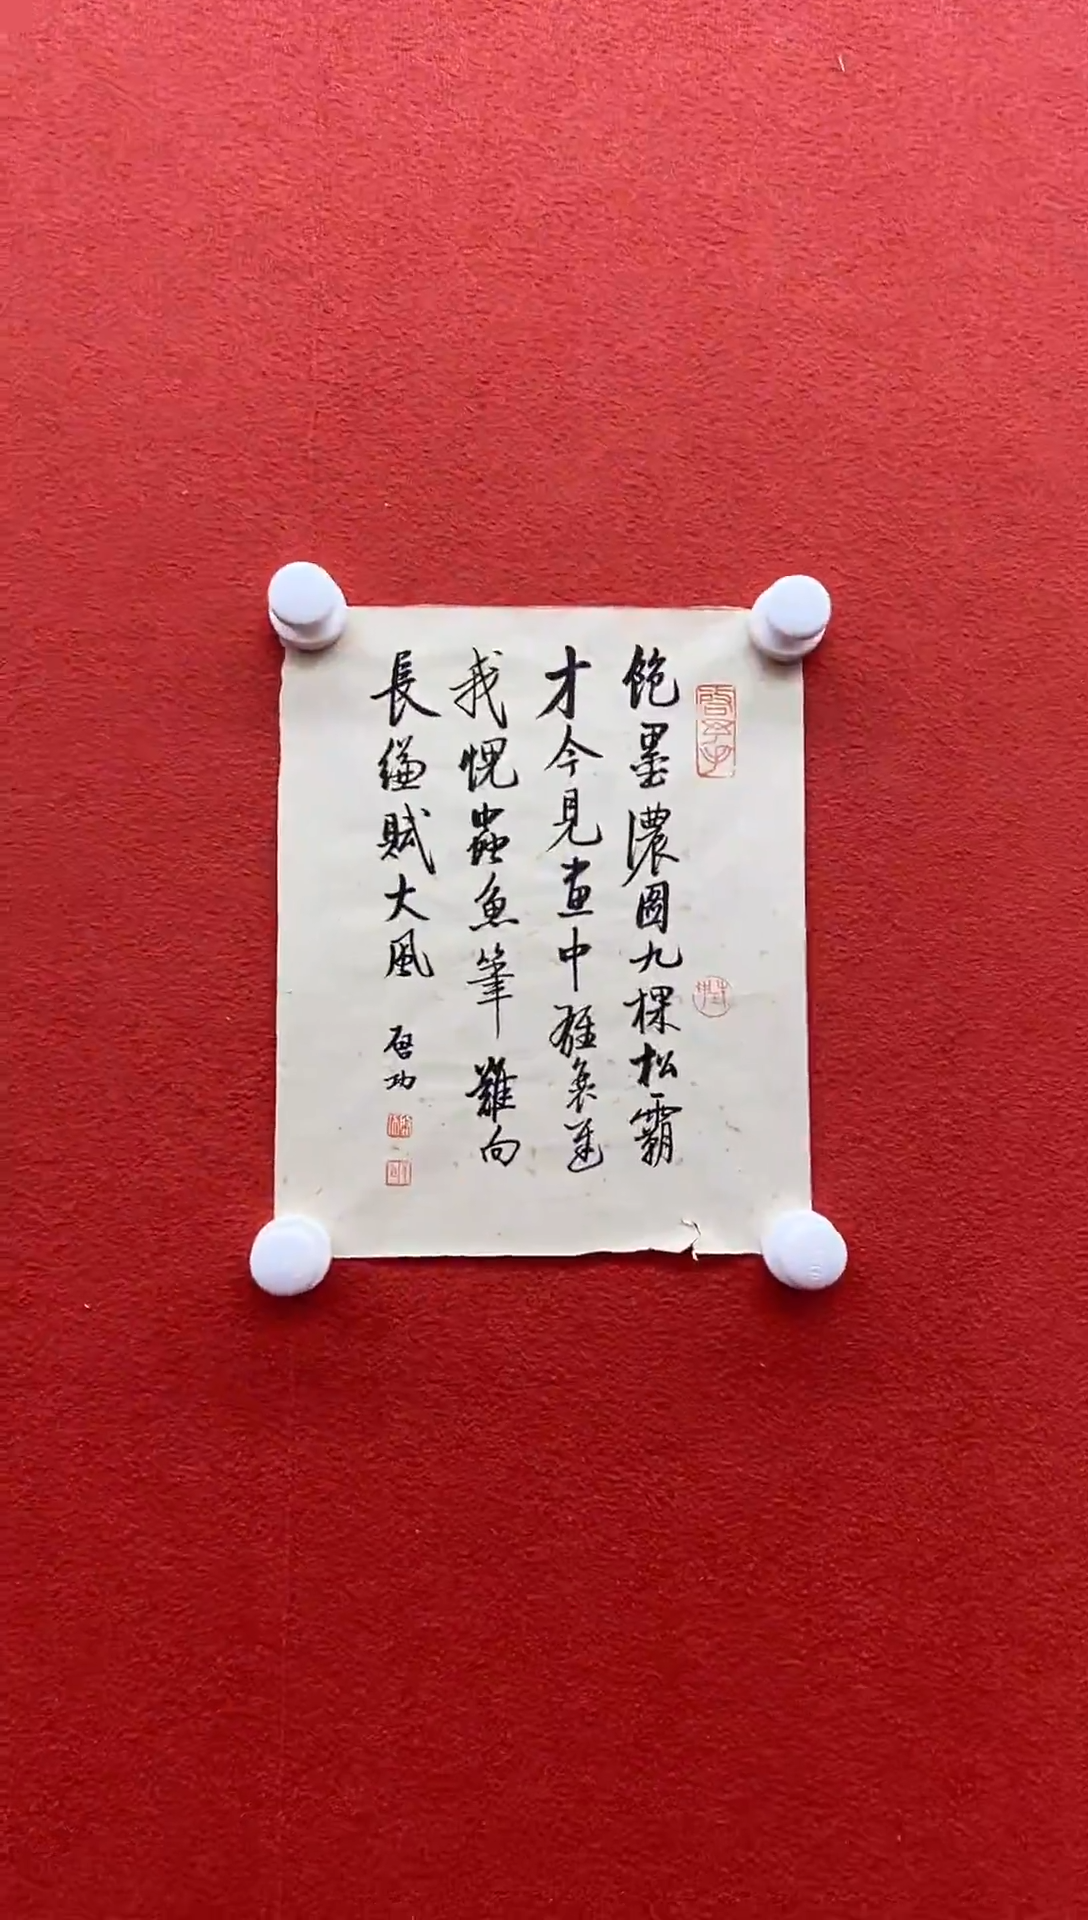 飽墨濃圖九棵松霸
才今見畫中雄衰遲
我愧蟲魚筆難向
長縑賦大風
启功